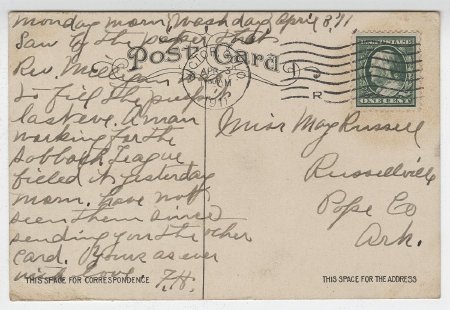 monday morn, Washday, April 3, 11
Saw by the paper that
Rev. Milligan
to fill the pulpit
last eve. A man
working for the
Sabbath League
filled it yesterday
morn. have not
seen them since
sending you the other
card. Yours as ever
with Love. F.H.
THIS SPACE FOR CORRESPONDENCE
Post Card
APR 3
1911
R
U.S. POSTAGE
ONE CENT
Miss May Russell
Russellville
Pope Co
Ark.
THIS SPACE FOR THE ADDRESS